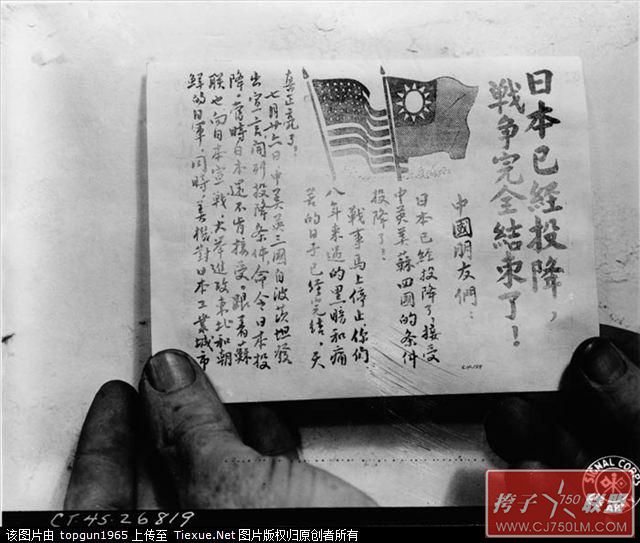 日本已經投降，
戰争完全結束了！
中國朋友們：
日本已經投降了，接受
中英美蘇四國的条件
投降了！
戰事馬上停止，你們
八年來過的黑暗和痛
苦的日子已經完結。天
真正亮了！
七月廿六日中美英三國自波茨坦發
出宣言，開列投降条件，命令日本投
降。當時日本還不肯接受。跟着蘇
聯也向日本宣戰，大举進攻東北和朝
鮮的日軍，同時，美機對日本工業城市
CT-45-26819
SIGNAL CORPS
胯子750联盟
WWW.CJ750LM.COM
该图片由 topgun1965 上传至 Tiexue.Net 图片版权归原创者所有